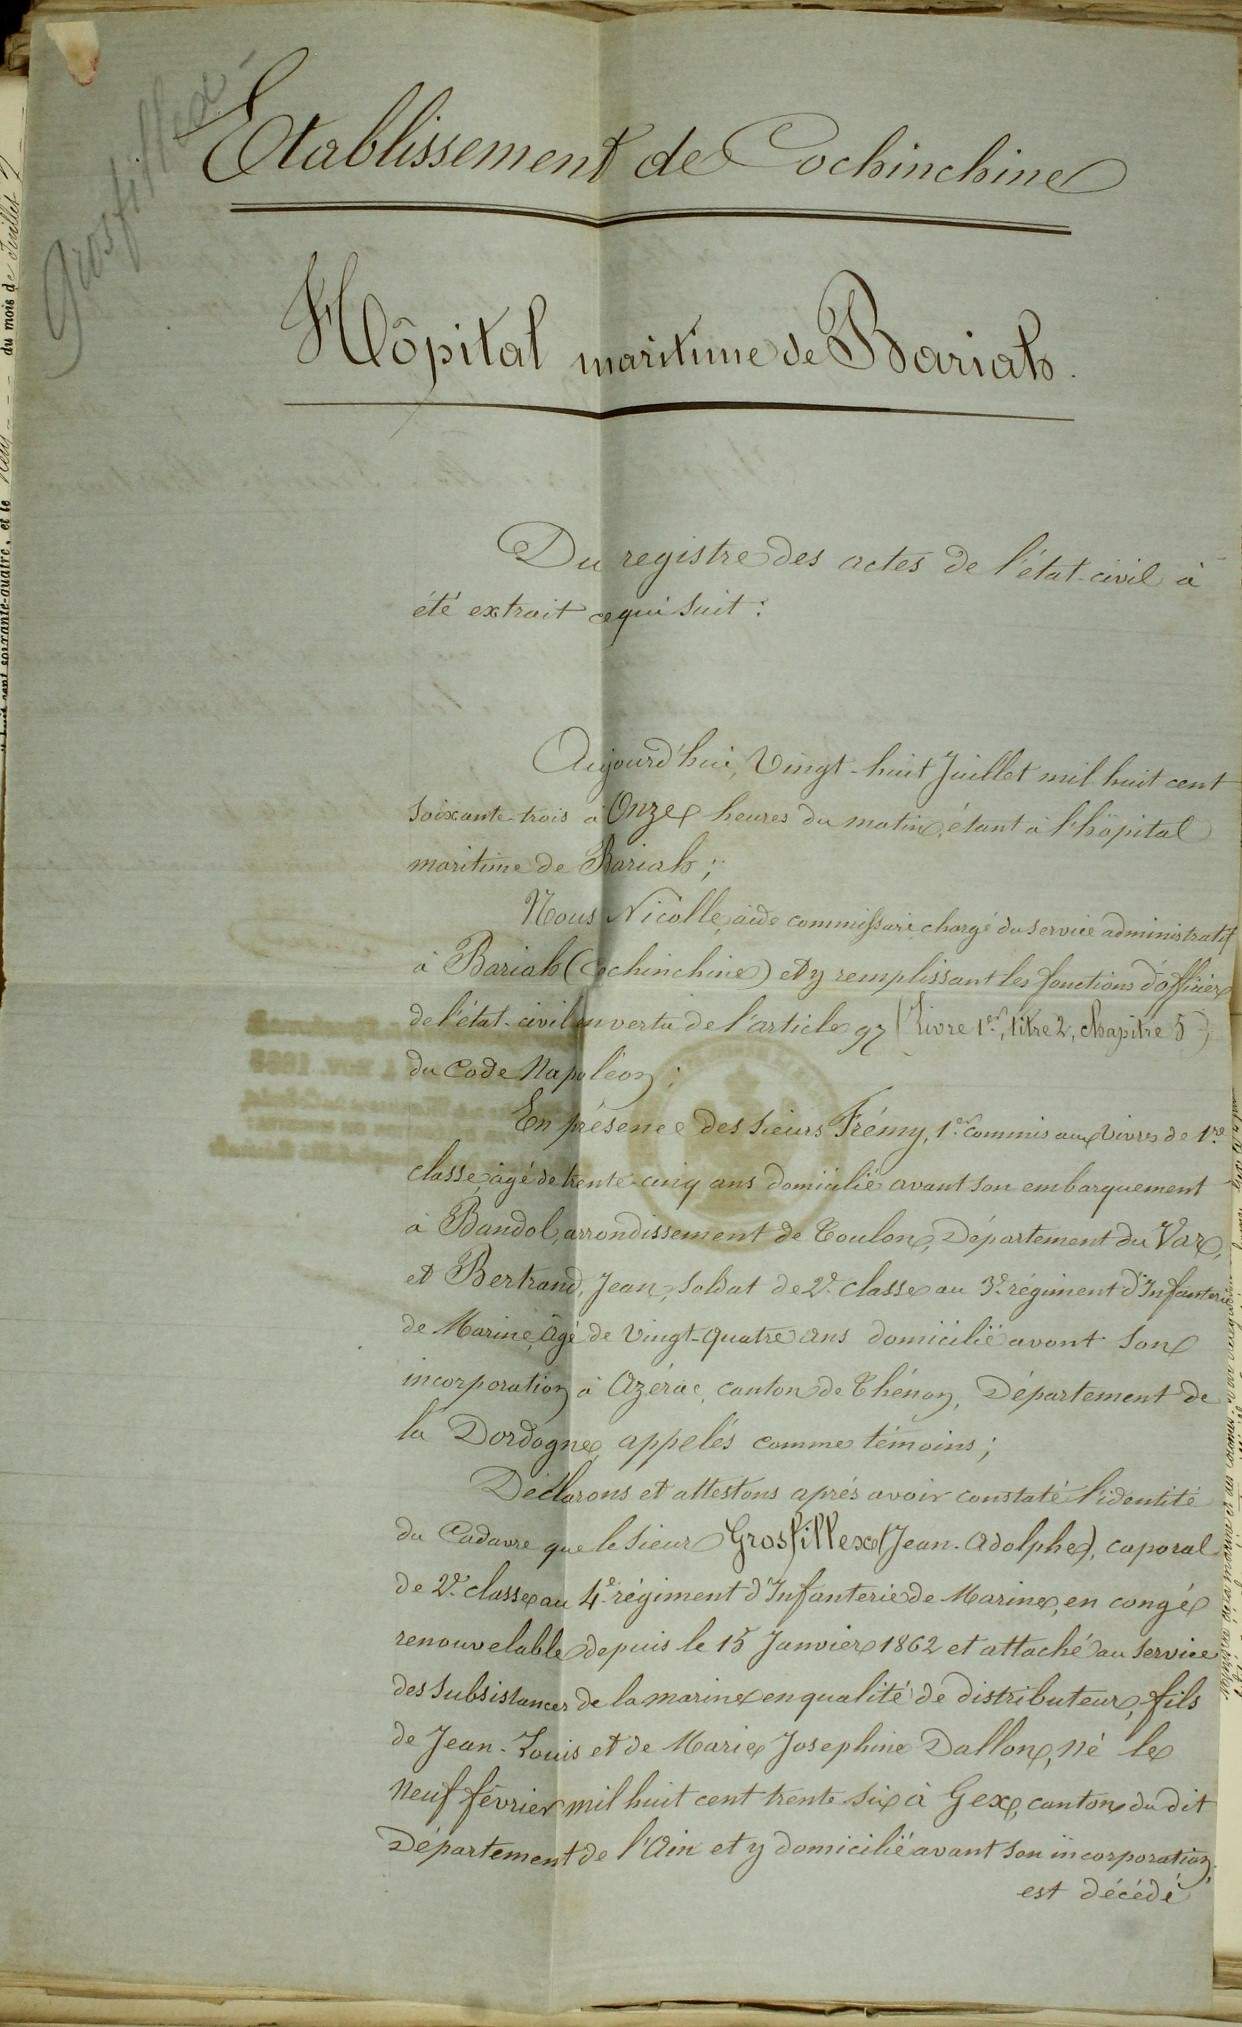 Grosfillex
Etablissement de Cochinchine
Hôpital maritime de Bariah.
Du registre des actes de l'état-civil à
été extrait ce qui suit :
Aujourd'hui, Vingt-huit Juillet mil huit cent
soixante-trois à Onze heures du matin, étant à l'hôpital
maritime de Bariah ;
Nous Nicolle, aide commissaire chargé du service administratif
à Bariah (Cochinchine) et y remplissant les fonctions d'officier
de l'état-civil en vertu de l'article 97 (Livre 1er, titre 2, chapitre 5)
du Code Napoléon ;
En présence des sieurs Frémy, 1er commis aux vivres de 1re
classe, âgé de trente-cinq ans domicilié avant son embarquement
à Bandol, arrondissement de Toulon, Département du Var,
et Bertrand, Jean, soldat de 2e classe au 3e régiment d'Infanterie
de Marine, âgé de Vingt-quatre ans domicilié avant son
incorporation à Azérac, canton de Thénon, Département de
la Dordogne, appelés comme témoins ;
Déclarons et attestons après avoir constaté l'identité
du Cadavre que le sieur Grosfillex (Jean-Adolphe), caporal
de 2e classe au 4e régiment d'Infanterie de Marine, en congé
renouvelable depuis le 15 Janvier 1862 et attaché au service
des subsistances de la marine en qualité de distributeur, fils
de Jean-Louis et de Marie Josephine Dallon, né le
Neuf février mil huit cent trente six à Gex, canton du dit
Département de l'Ain et y domicilié avant son incorporation,
est décédé
du mois de Juillet